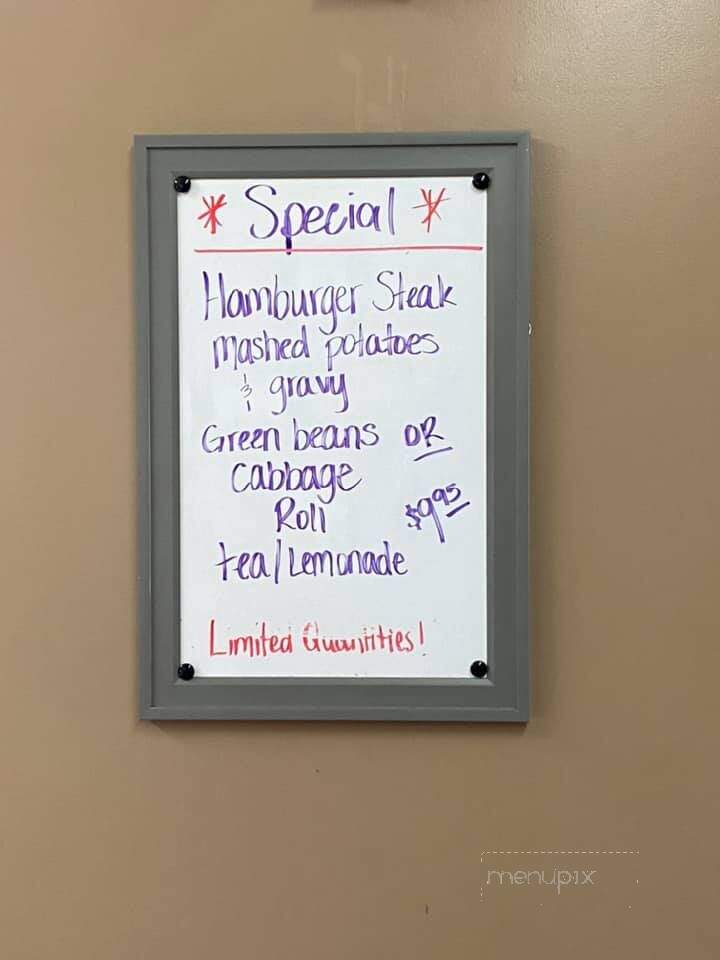 * Special *
Hamburger Steak
mashed potatoes
& gravy
Green beans OR
Cabbage
Roll $9.95
tea/Lemonade
Limited Quantities!
menupix